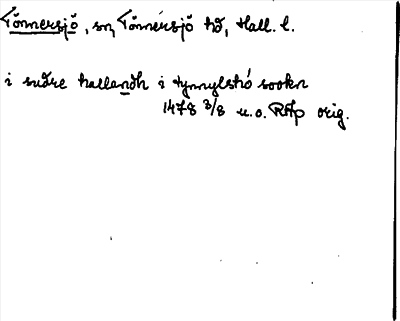 Tönnersjö, sn, Tönnersjö hd, Hall. l.
i sudre hallendh i tynnylshö sookn
1478 3/8 u.o. RAp orig.